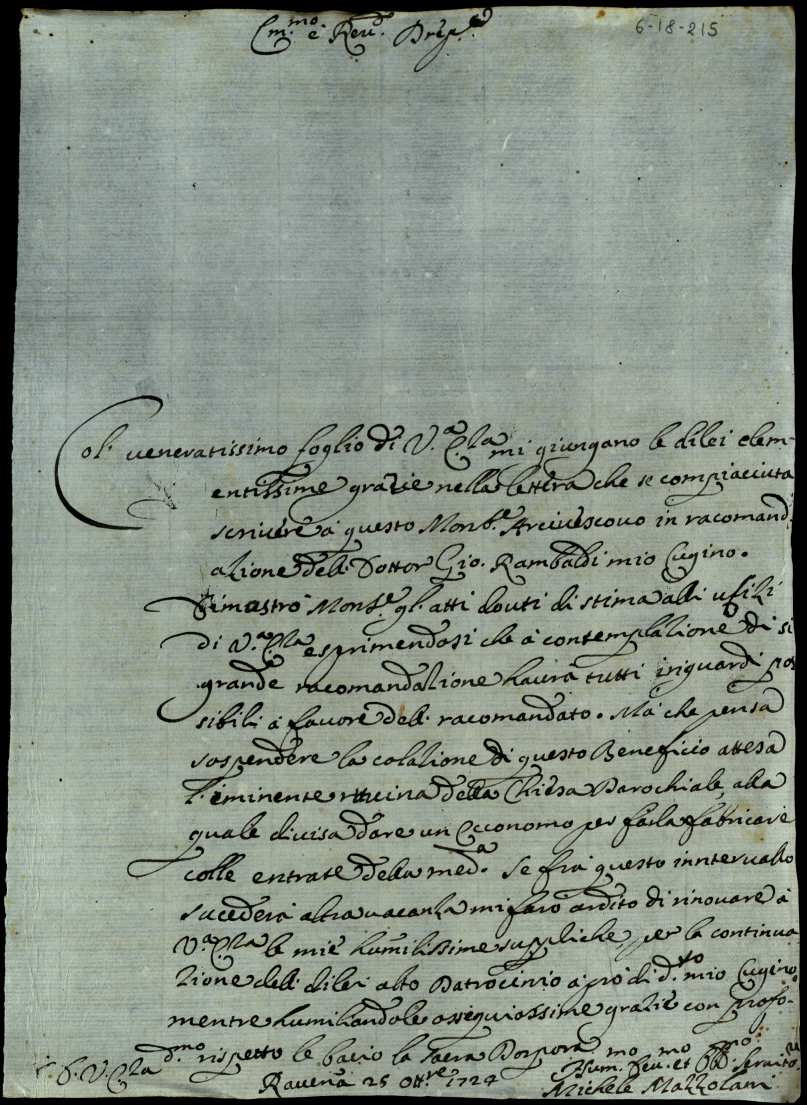 Em.mo e Reu.d Prep.
6-18-215
Col' ueneratissimo foglio di V.a E.za mi giungano le dilei clem-
entissime grazie nella lettera che se compiaciuta
scriuere à questo Mons.e Arciuescouo in racomand
azione dell' Dottor Gio. Rambaldi mio Cugino.
Dimostrò Mons.e gl' atti douti di stima alli ufizi
di V.a E.za esprimendosi che à contemplazione di si
grande racomandazione hauirà tutti i riguardi pos
sibili à fauore dell' racomandato. Mà che pensa
sospendere la colazione di questo Beneficio attesa
l' eminente ruuina della Chiesa Parochiale, alla
quale diuisa dare un Economo per farla fabricare
colle entrate della med.a Se frà questo inntervallo
sucederà altra uacanza mi farò ardito di rinouare à
V.a E.za le mie humilissime suppliche, per la continua
zione dell' dilei alto Patrocinio à prò di d.to mio Cugino
mentre humiliandole ossequiossime grazie con profo-
d.mo rispetto le bacio la Sacra Porpora
D. V. E.za
Rauena 25 Ott.re 1724
Hum.mo Deu.mo et Obb.mo Seruito.re
Michele Mazzolani